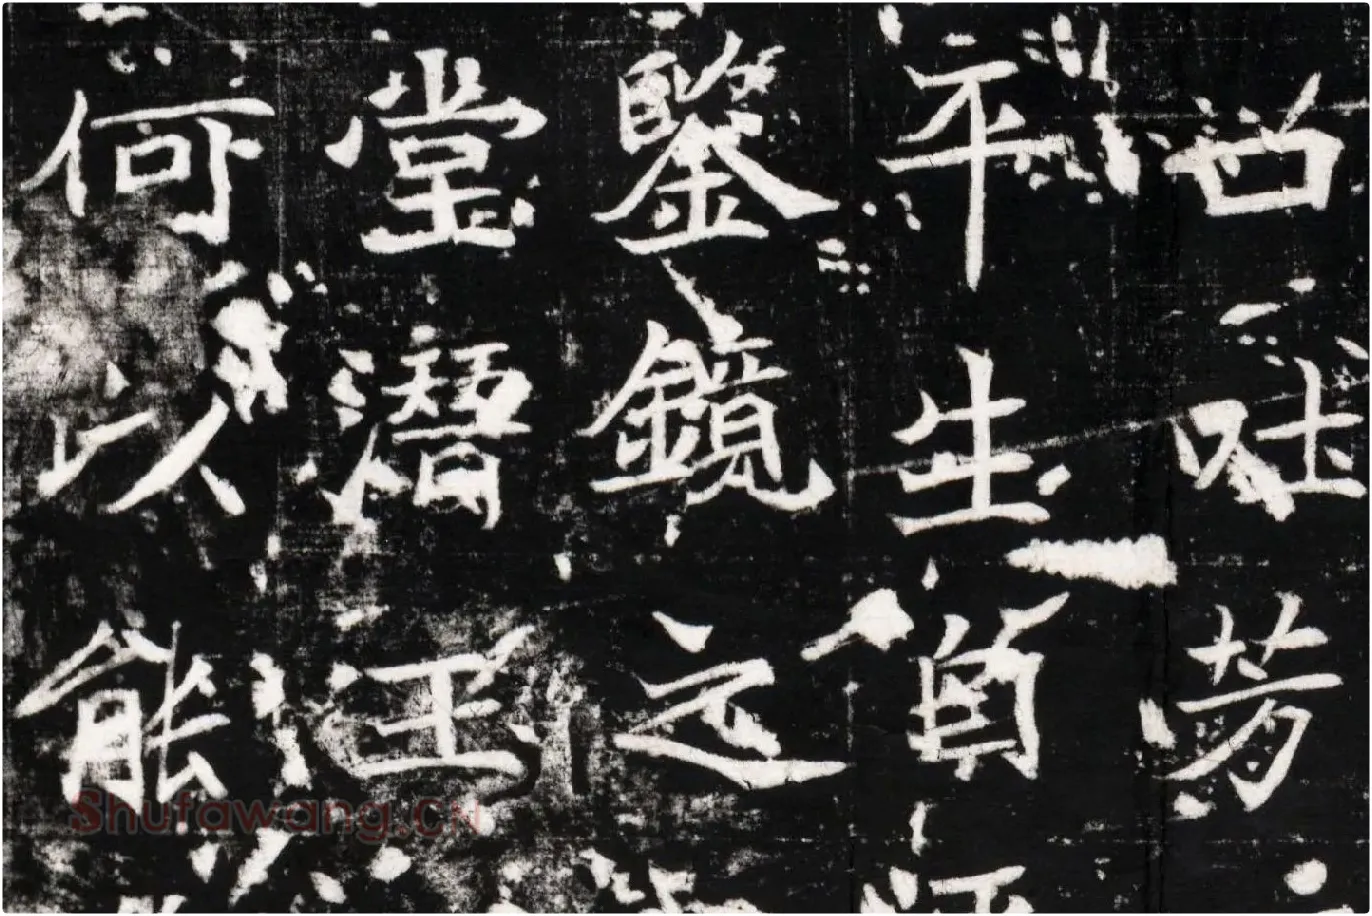 口吐芳
平生
鑒鏡之
堂潛王
何以能
Shufawang.CN